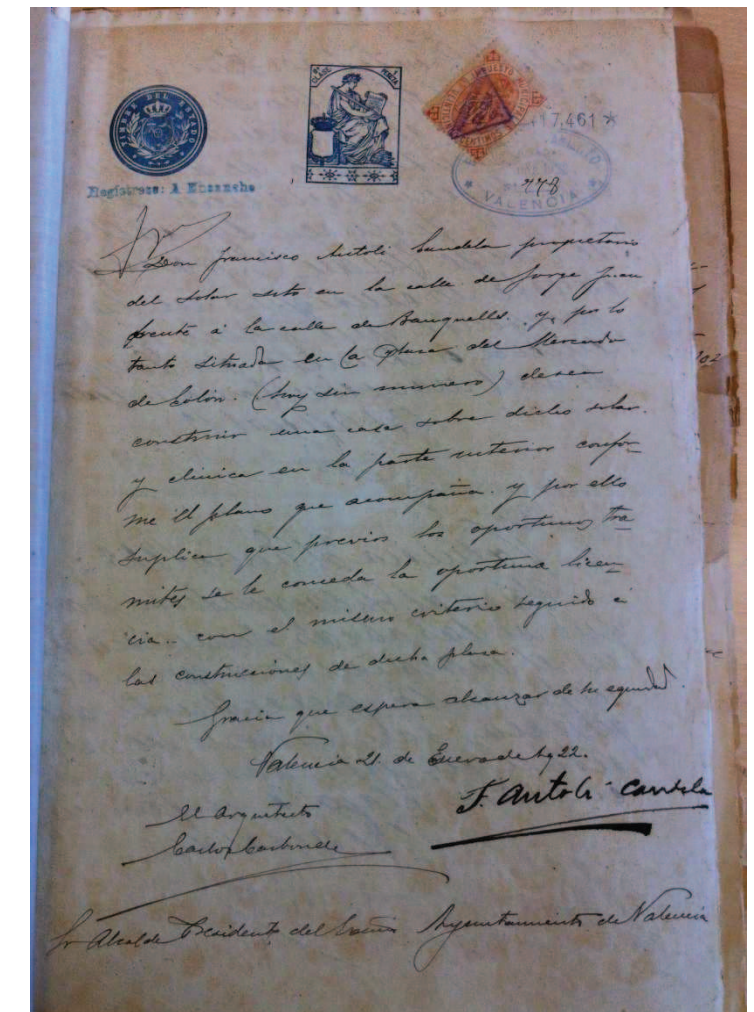 TIMBRE DEL ESTADO
CLASE 8ª 1 PESETA
17,461 *
VALENCIA
778
Registrese: A Ensanche
Don Francisco Antoli Candela propietario
del solar sito en la calle de Jorge Juan
frente á la calle de Banquells. y, por lo
tanto situada en la plaza del Mercado
de Colón. (hoy sin número) desea
construir una casa sobre dicho solar.
y clinica en la parte interior confor-
me il plano que acompaña. y por ello
suplica que previos los oportunos tra-
mites se le conceda la oportuna licen-
cia.. con el mismo criterio seguido á
las construciones de dicha plaza.
Gracia que espera alcanzar de su equidad.
Valencia 21 de Enero de 1922.
F. Antoli Candela
El Arquitecto
Carlos Carbonell
Sr Alcalde Presidente del Excmo Ayuntamiento de Valencia